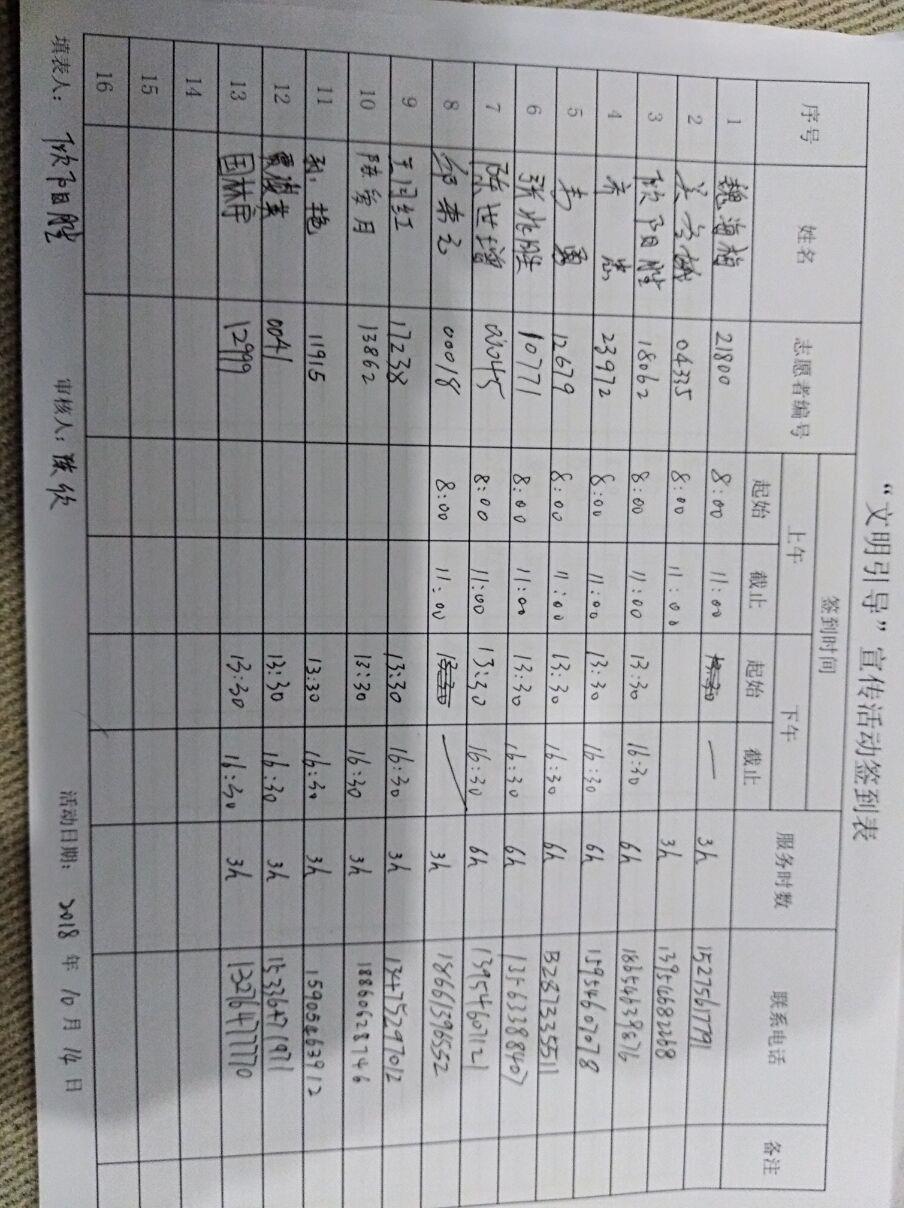 “文明引导”宣传活动签到表
序号 姓名 志愿者编号 签到时间 服务时数 联系电话 备注
上午 下午
起始 截止 起始 截止
1 魏海梅 21800 8:00 11:00 13:30 — 3h 15275617791
2 04335 8:00 11:00 3h 13954682268
3 欧阳胜 18062 8:00 11:00 13:30 16:30 6h 18654639876
4 齐 23972 8:00 11:00 13:30 16:30 6h 15954607078
5 李勇 12679 8:00 11:00 13:30 16:30 6h 13287335511
6 张兆胜 10771 8:00 11:00 13:30 16:30 6h 13563388407
7 陈世增 00045 8:00 11:00 13:30 16:30 6h 13954607121
8 00018 8:00 11:00 13:30 3h 18661396552
9 王闪红 17238 13:30 16:30 3h 13475297012
10 陈爱月 13862 13:30 16:30 3h 18860628746
11 孙艳 11915 13:30 16:30 3h 15905463912
12 0041 13:30 16:30 3h 15336471971
13 12999 13:30 16:30 3h 13276477770
14
15
16
填表人： 欧阳胜 审核人：陈欣 活动日期： 2018 年 10 月 14 日